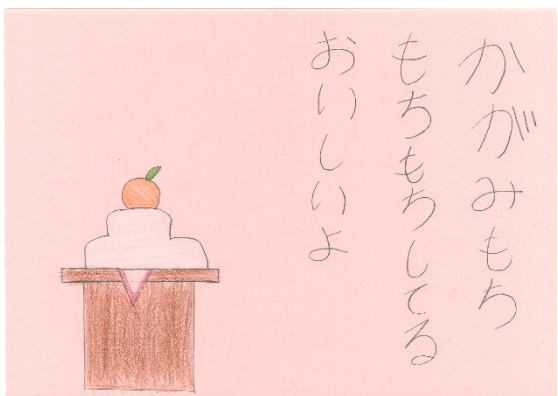 かがみもち
もちもちしてる
おいしいよ